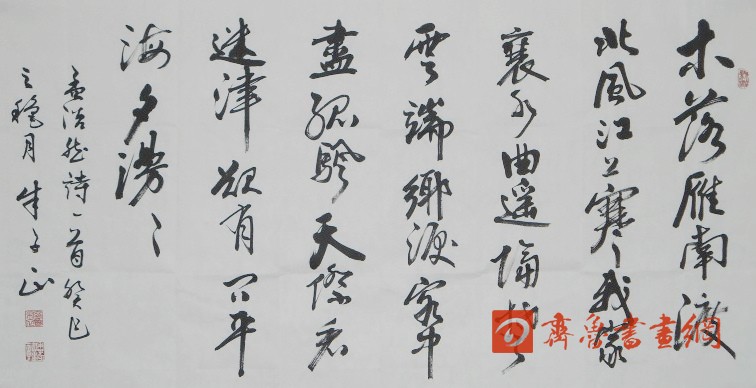 木落雁南渡
北風江上寒我家
襄水曲遥隔楚
雲端鄉淚客中
盡孤帆天際看
迷津欲有问平
海夕漫〻
孟浩然詩一首癸巳
之穐月 朱子
齊魯書畫網